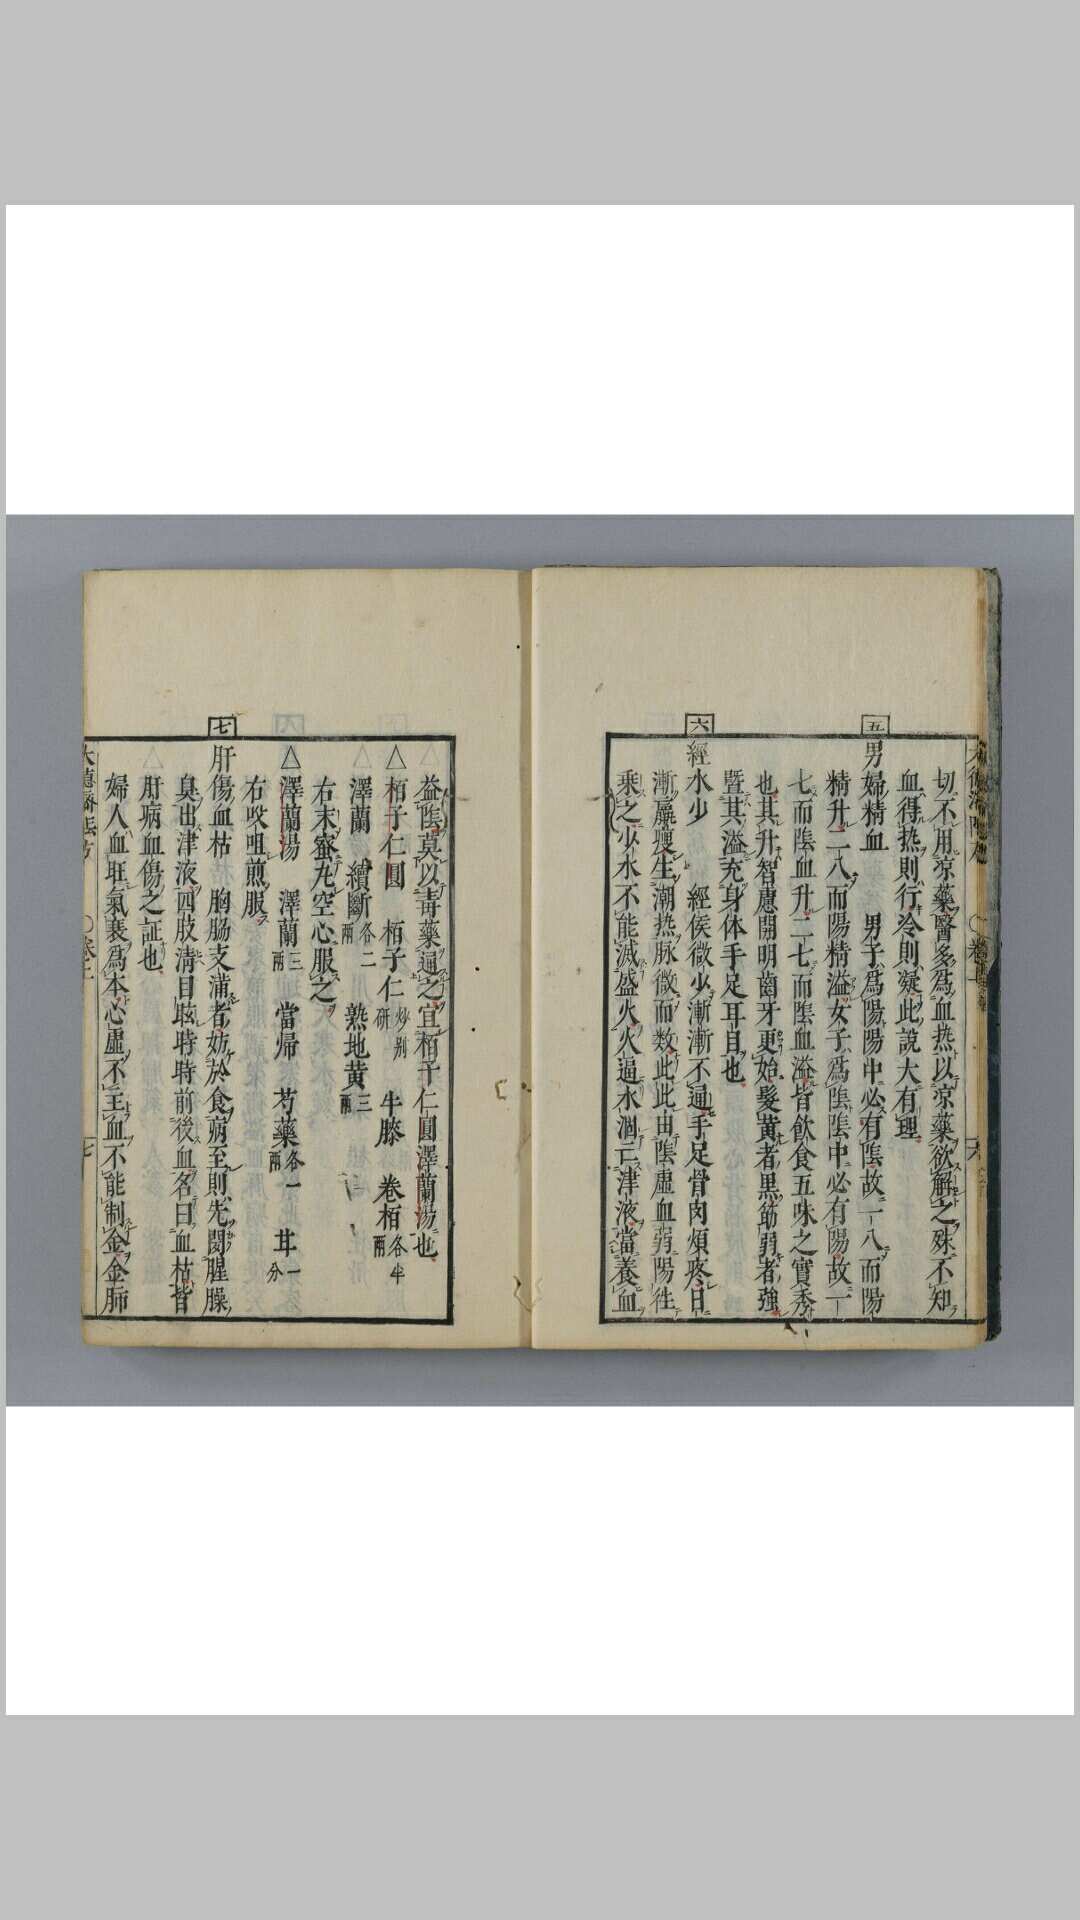 切不用涼藥醫多爲血热以涼藥欲解之殊不知
血得热則行冷則凝此說大有理
五
男婦精血　男子爲陽陽中必有陰故一八而陽
精升二八而陽精溢女子爲陰陰中必有陽故一
七而陰血升二七而陰血溢皆飲食五味之實秀
也其升智慮開明齒牙更始髮黃者黒筋弱者強
暨其溢充身体手足耳目也
六
經水少　經侯微少漸漸不通手足骨肉煩疼日
漸羸瘦生潮热脉微而数此此由陰虛血弱陽徃
乘之少水不能滅盛火火逼水涸亡津液當養血
益陰莫以毒藥通之宜栢子仁圓澤蘭湯也
△栢子仁圓　栢子仁炒別研　牛膝　卷栢各半兩
澤蘭　續斷各二兩　熟地黄三兩
右末蜜丸空心服之
△澤蘭湯　澤蘭三兩　當帰　芍藥各一兩　甘一分
右㕮咀煎服
七
肝傷血枯　胸膓支滿者妨於食病至則先聞腥臊
臭出津液四肢清目眩時時前後血名曰血枯皆
肝病血傷之証也
婦人血旺氣衰爲本心虛不主血不能制金金肺